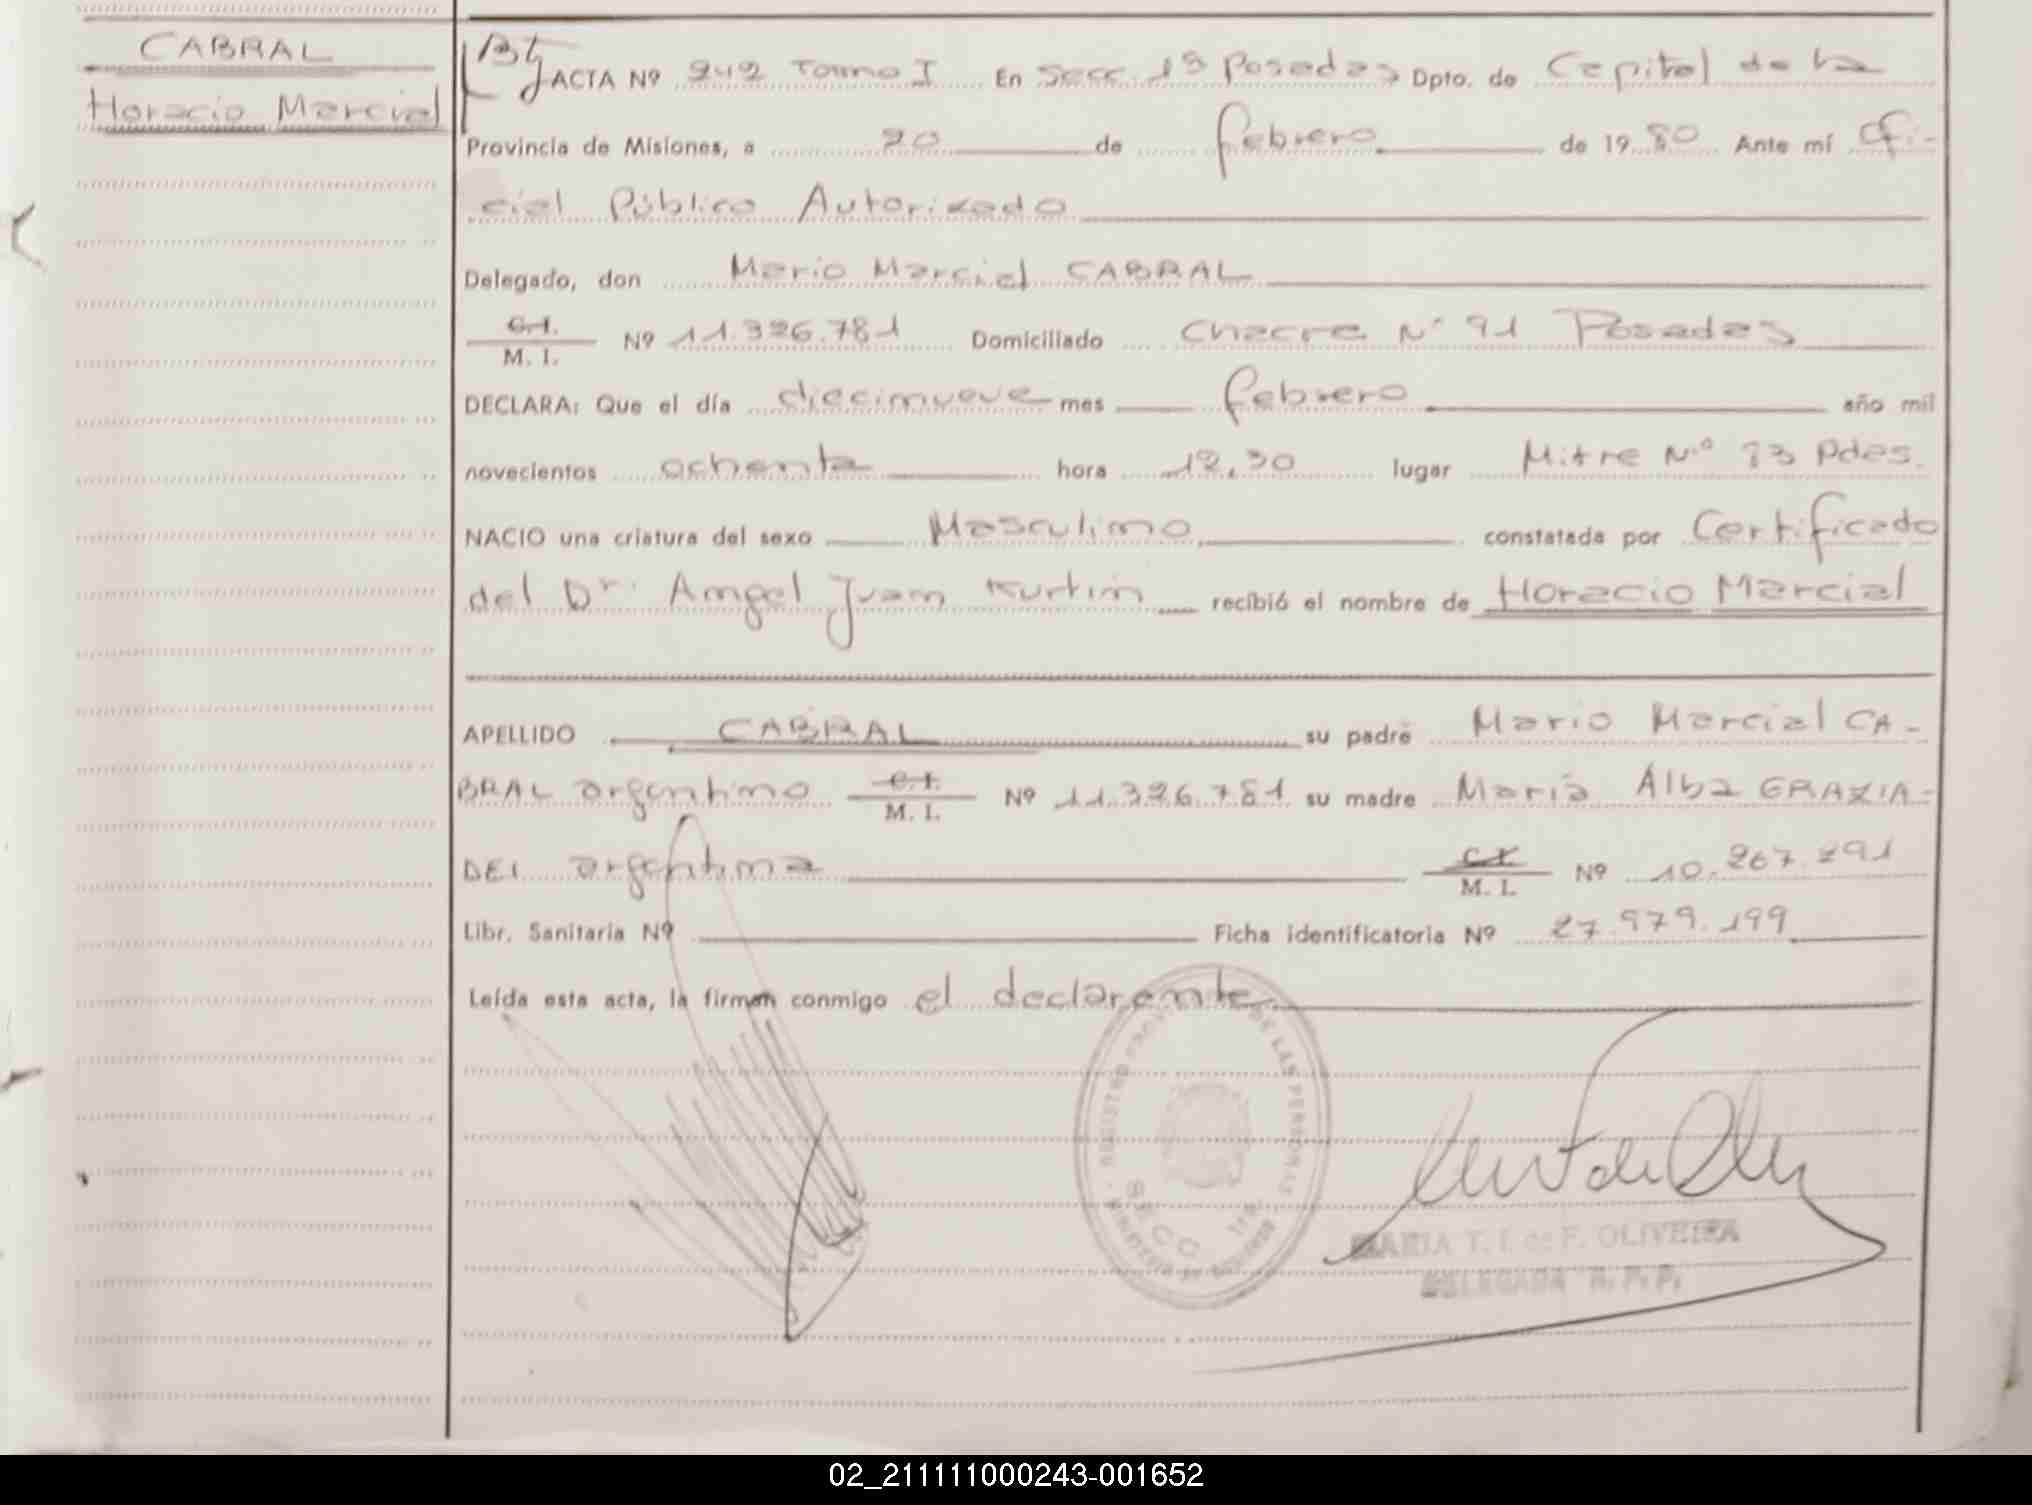 CABRAL
Horacio Marcial
ACTA Nº 242 Tomo I En Secc. 1ª Posadas Dpto. de Capital de la
Provincia de Misiones, a 20 de febrero de 1980 Ante mí Ofi-
cial Público Autorizado
Delegado, don Mario Marcial CABRAL
C.I.
M. I. Nº 11.326.781 Domiciliado Chacra Nº 91 Posadas
DECLARA: Que el día diecinueve mes febrero año mil
novecientos ochenta hora 12,30 lugar Mitre Nº Pdas.
NACIO una criatura del sexo Masculino constatada por Certificado
del Dr. Angel Juan Kurtin recibió el nombre de Horacio Marcial
APELLIDO CABRAL su padre Mario Marcial CA-
BRAL argentino C.I. M. I. Nº 11.326.781 su madre María Alba GRAZIA-
DEI argentina C.I. M. I. Nº 10.267.291
Libr. Sanitaria Nº Ficha identificatoria Nº 27.979.199
Leída esta acta, la firman conmigo el declarante
DE LAS PERSONAS
SECC. 1ra.
MARIA T. I. de F. OLIVEIRA
DELEGADA R. P. P.
02_211111000243-001652